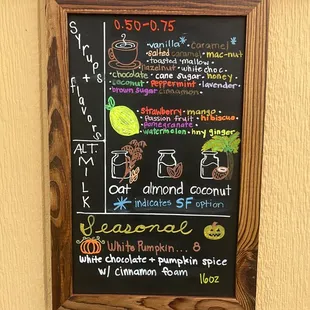 Syrups + flavors
0.50-0.75
vanilla* • caramel*
salted caramel • mac-nut
toasted mallow
hazelnut • white choc •
chocolate • cane sugar • honey
coconut • peppermint • lavender
brown sugar cinnamon •
strawberry • mango •
Passion fruit • hibiscus
pomegranate •
watermelon • hny ginger
ALT. MILK
oat almond coconut
* indicates SF option
Seasonal
White Pumpkin... 8
white chocolate + pumpkin spice
w/ cinnamon foam 16oz